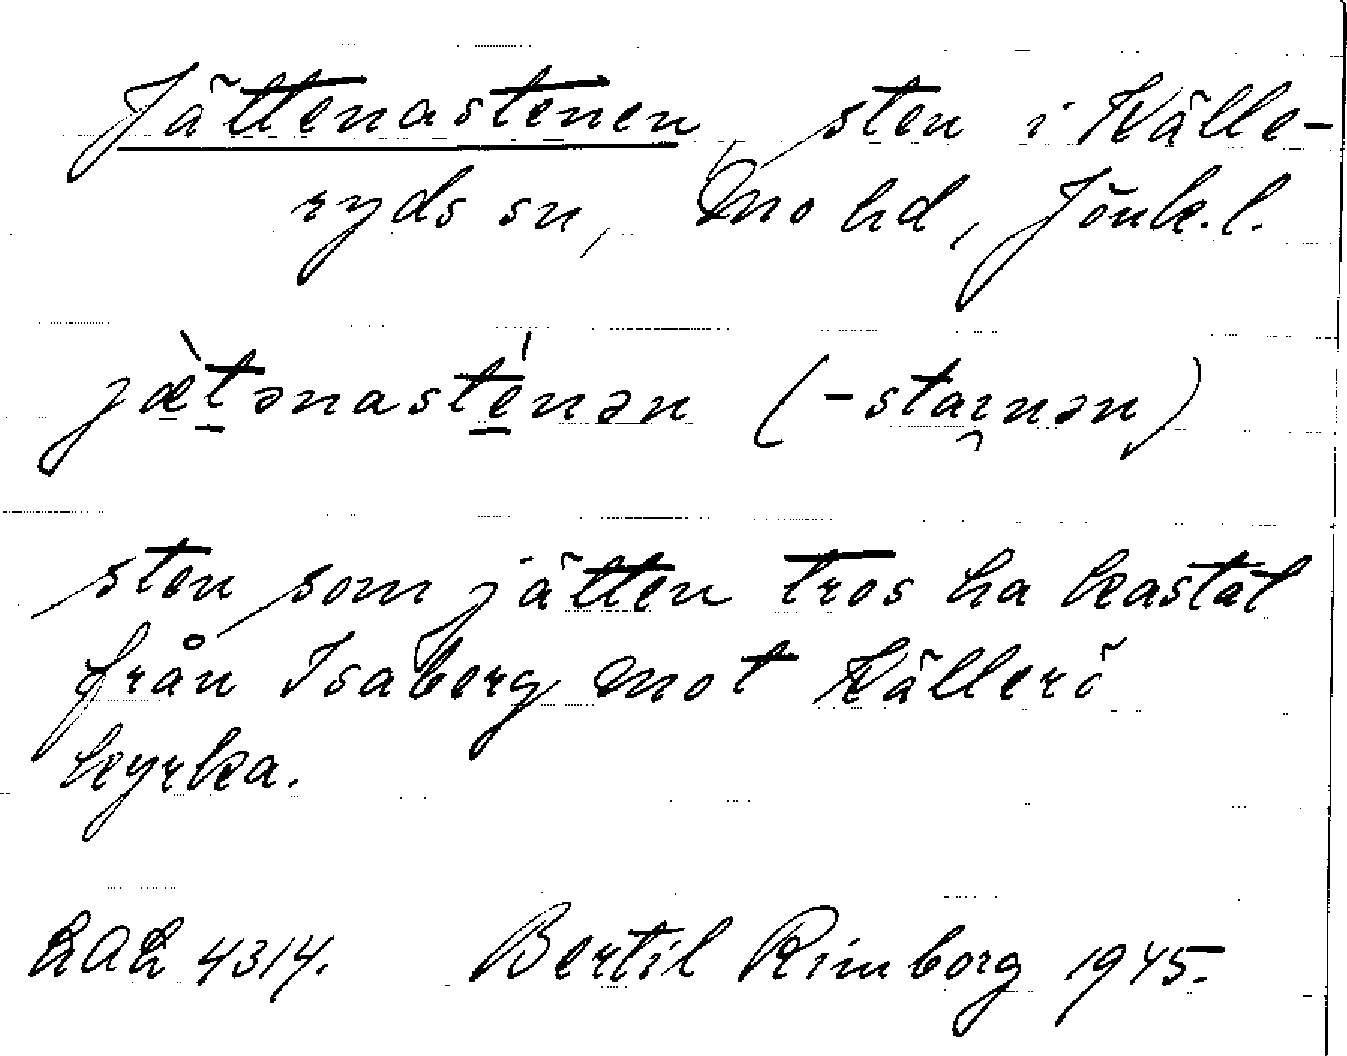 Jättenastenen, sten i Källe-
ryds sn, Mo hd, Jönk.l.
jæ̀t̲ənast̲é̲nən (-stai̯nən)
sten som jätten tros ha kastat
från Isaberg mot Källerö
kyrka.
LAL 4314. Bertil Rimborg 1945.